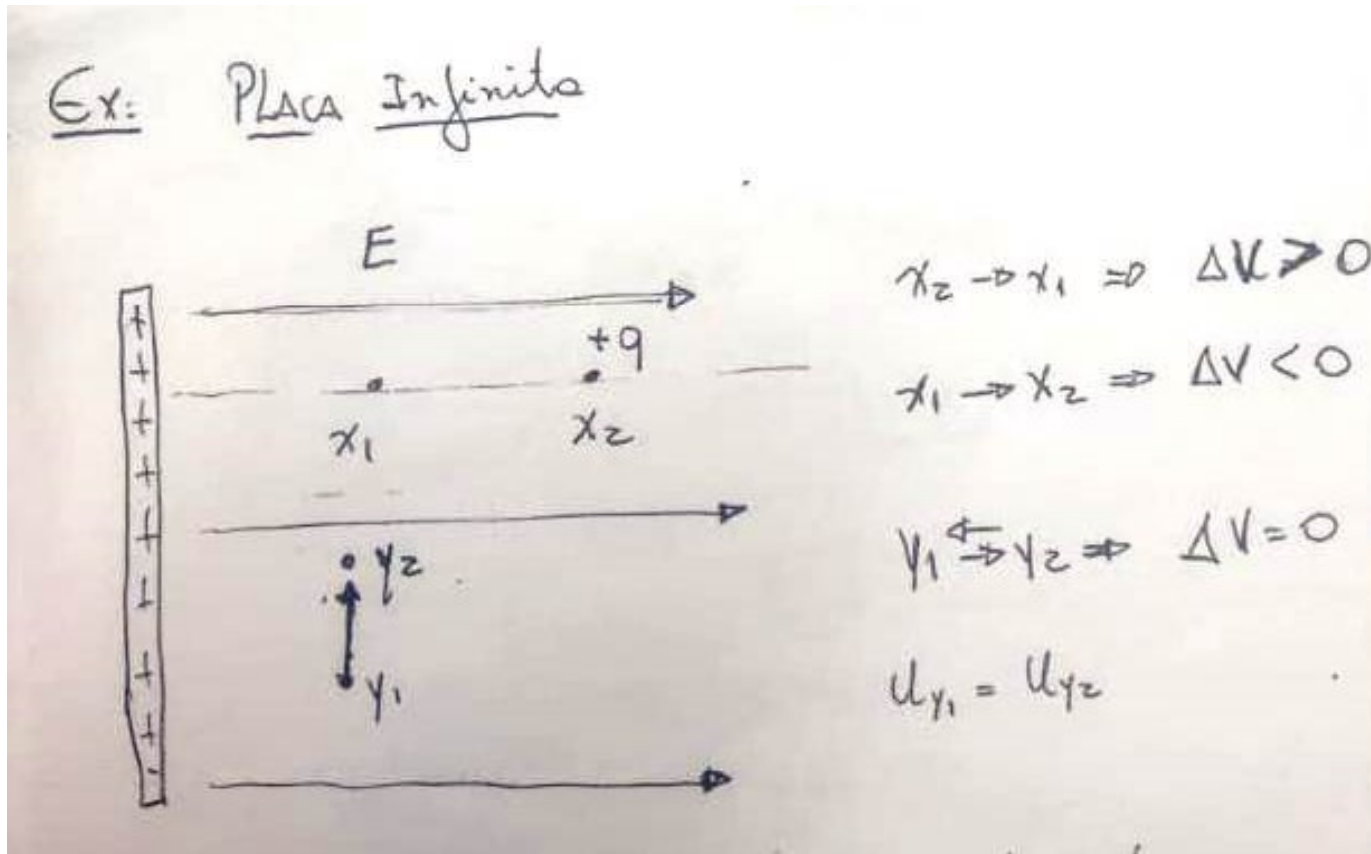 Ex: PLACA Infinita
E
+ + + + + + + +
+q
x₁ x₂
y₂
y₁
x₂ → x₁ ⇒ ΔV > 0
x₁ → x₂ ⇒ ΔV < 0
y₁ ⇄ y₂ ⇒ ΔV = 0
U_y₁ = U_y₂